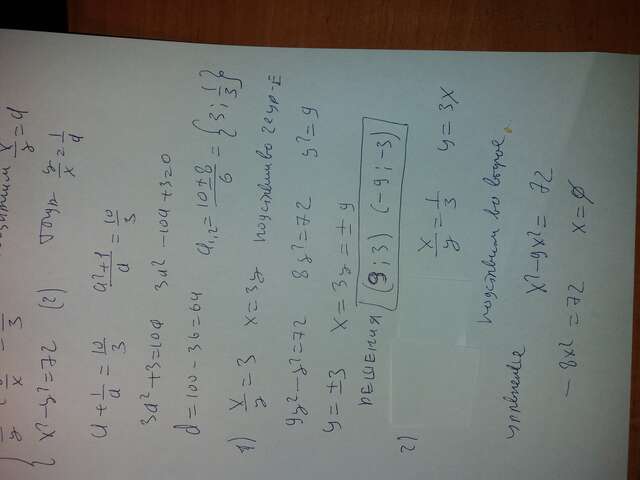 x/y + y/x = 10/3 x/y = a
x² - y² = 72 (2) тогда y/x = 1/a
a + 1/a = 10/3 (a² + 1)/a = 10/3
3a² + 3 = 10a 3a² - 10a + 3 = 0
d = 100 - 36 = 64 a₁,₂ = (10 ± 8)/6 = {3; 1/3}
1) x/y = 3 x = 3y подставим во 2 ур-е
9y² - y² = 72 8y² = 72 y² = 9
y = ±3 x = 3y = ±9
РЕШЕНИЯ (9; 3) (-9; -3)
2)
x/y = 1/3 y = 3x
подставим во второе
уравнение
x² - 9x² = 72
- 8x² = 72 x = ∅